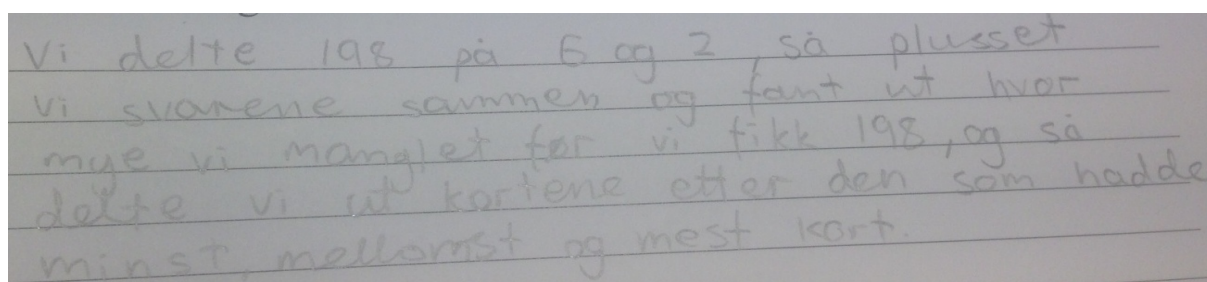 Vi delte 198 på 6 og 2, så plusset
vi svarene sammen og fant ut hvor
mye vi manglet før vi fikk 198, og så
delte vi ut kortene etter den som hadde
minst, mellomst og mest kort.